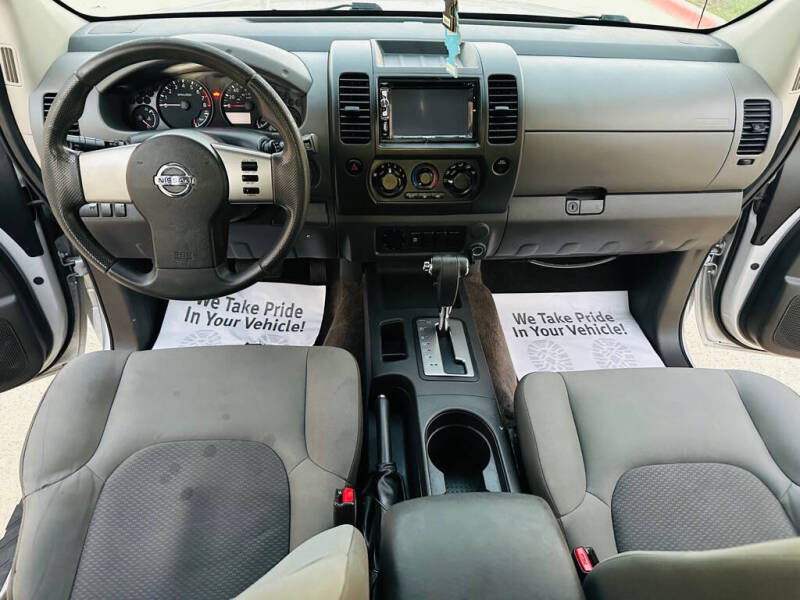 NISSAN
We Take Pride
In Your Vehicle!
We Take Pride
In Your Vehicle!